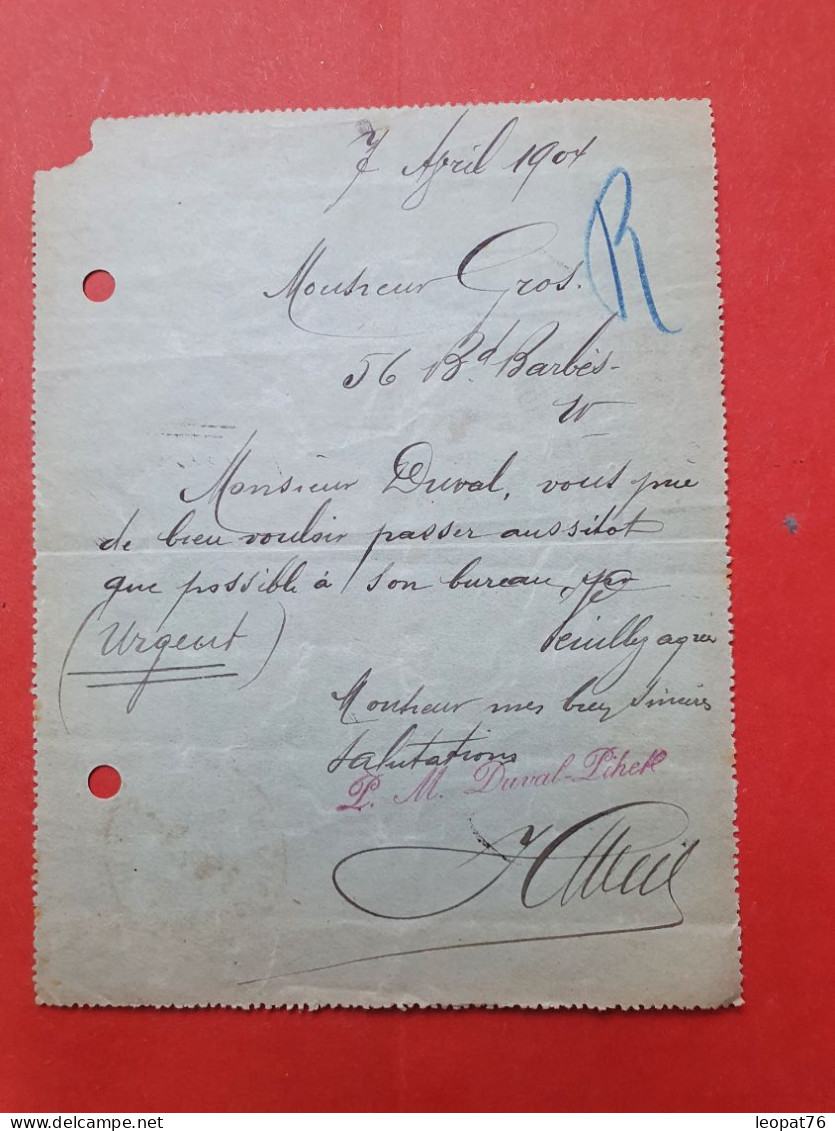 7 Avril 1904
R
Monsieur Gros.
56 Bd Barbès-
Monsieur Duval, vous prie
de bien vouloir passer aussitot
que possible à son bureau,
(Urgent) Veuillez agréer
Monsieur mes bien sincères
salutations
P. M. Duval-Pihet
leopat76